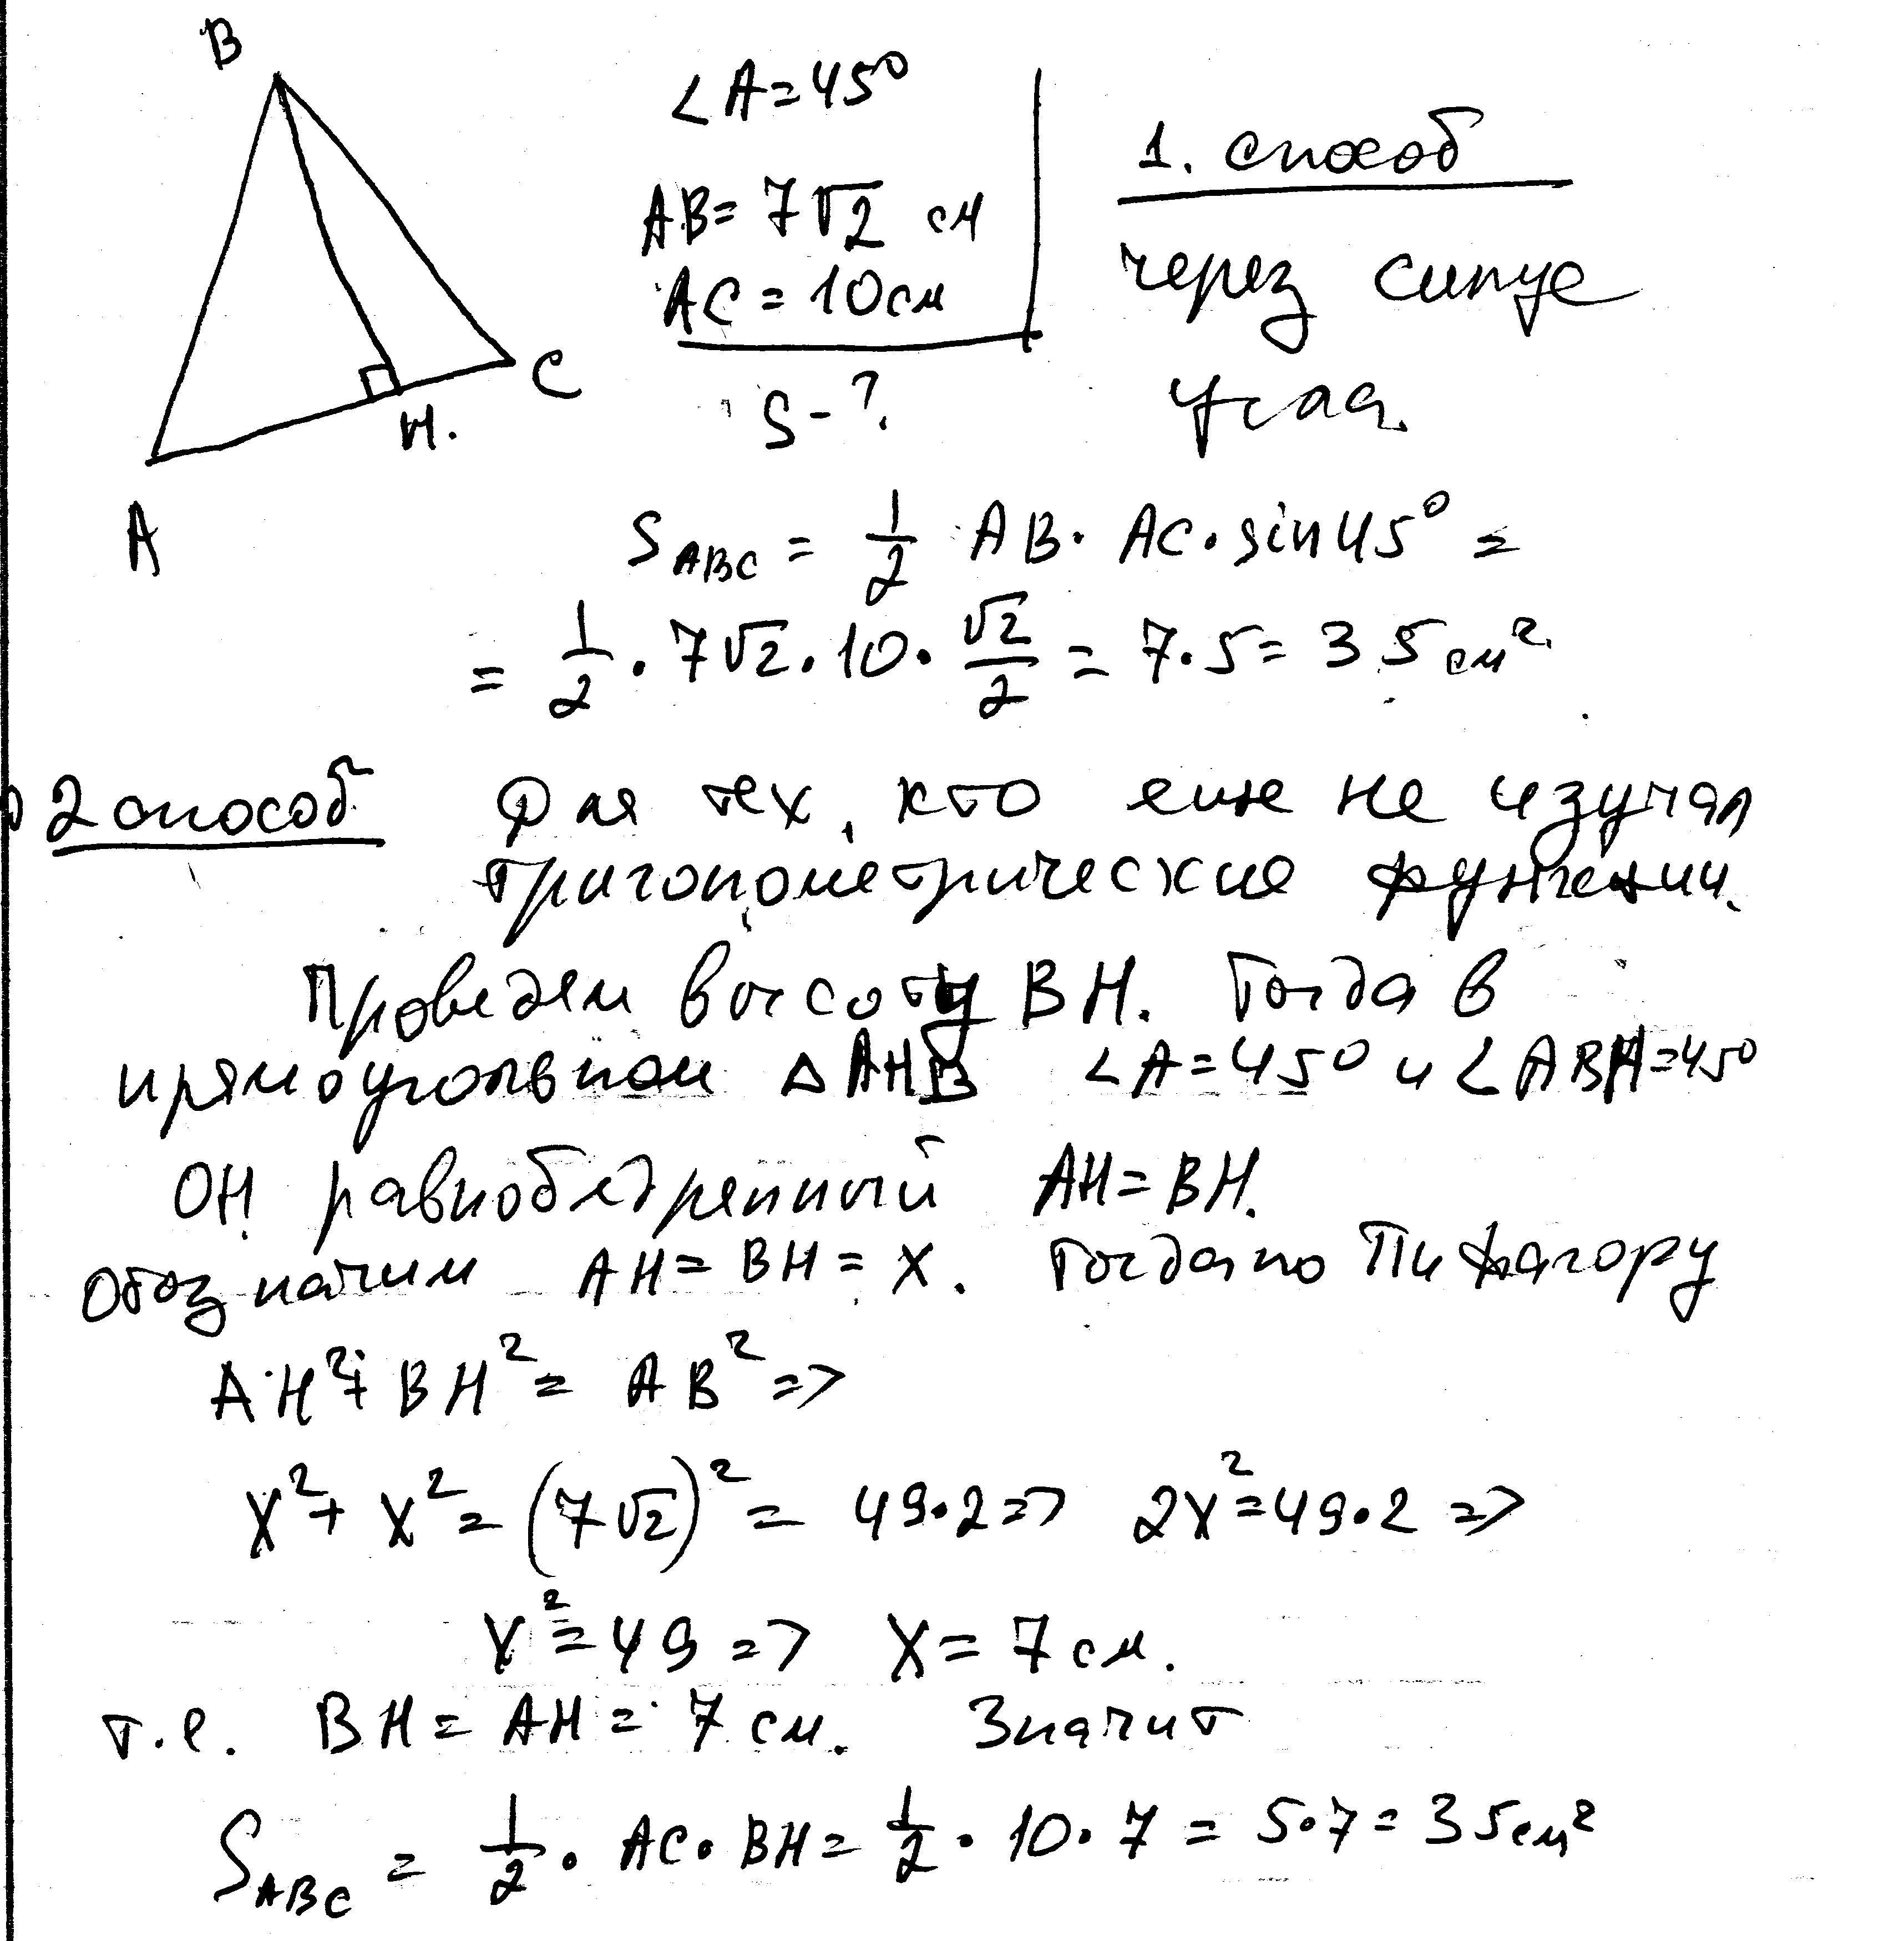 B
∠A=45°
1. способ
AB=7√2 см
через синус
AC=10см
C
H.
S-?
угла.
A
S_ABC = 1/2 AB·AC·sin45° =
= 1/2·7√2·10·√2/2 = 7·5= 35см²
2 способ Для тех, кто еще не изучал
тригонометрические функции.
Проведем высоту BH. Тогда в
прямоугольном △AHB ∠A=45° и ∠ABH=45°
ОН равнобедренный AH=BH.
Обозначим AH=BH=X. Тогда по Пифагору
AH²+BH²=AB²=>
X²+X²=(7√2)²=49·2=> 2X²=49·2=>
X²=49=> X=7см.
т.е. BH=AH=7см. Значит
S_ABC = 1/2·AC·BH=1/2·10·7=5·7=35см²